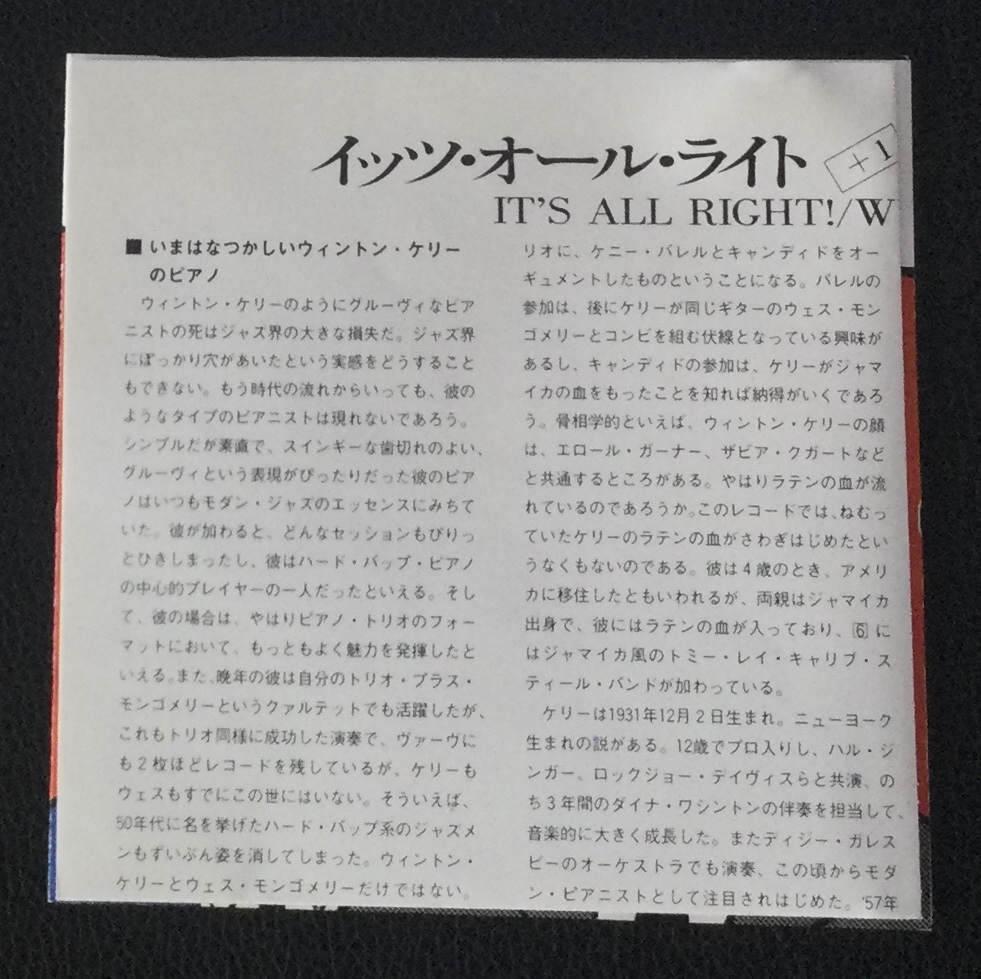 イッツ・オール・ライト +1
IT'S ALL RIGHT!/W
■いまはなつかしいウィントン・ケリー
のピアノ
ウィントン・ケリーのようにグルーヴィなピア
ニストの死はジャズ界の大きな損失だ。ジャズ界
にぽっかり穴があいたという実感をどうすること
もできない。もう時代の流れからいっても、彼の
ようなタイプのピアニストは現れないであろう。
シンプルだが素直で、スインギーな歯切れのよい、
グルーヴィという表現がぴったりだった彼のピア
ノはいつもモダン・ジャズのエッセンスにみちて
いた。彼が加わると、どんなセッションもぴりっ
とひきしまったし、彼はハード・バップ・ピアノ
の中心的プレイヤーの一人だったといえる。そし
て、彼の場合は、やはりピアノ・トリオのフォー
マットにおいて、もっともよく魅力を発揮したと
いえる。また、晩年の彼は自分のトリオ・プラス・
モンゴメリーというクァルテットでも活躍したが、
これもトリオ同様に成功した演奏で、ヴァーヴに
も2枚ほどレコードを残しているが、ケリーも
ウェスもすでにこの世にはいない。そういえば、
50年代に名を挙げたハード・バップ系のジャズメ
ンもずいぶん姿を消してしまった。ウィントン・
ケリーとウェス・モンゴメリーだけではない。
リオに、ケニー・バレルとキャンディドをオー
ギュメントしたものということになる。バレルの
参加は、後にケリーが同じギターのウェス・モン
ゴメリーとコンビを組む伏線となっている興味が
あるし、キャンディドの参加は、ケリーがジャマ
イカの血をもったことを知れば納得がいくであろ
う。骨相学的といえば、ウィントン・ケリーの顔
は、エロール・ガーナー、ザビア・クガートなど
と共通するところがある。やはりラテンの血が流
れているのであろうか。このレコードでは、ねむっ
ていたケリーのラテンの血がさわぎはじめたとい
うなくもないのである。彼は4歳のとき、アメリ
カに移住したともいわれるが、両親はジャマイカ
出身で、彼にはラテンの血が入っており、⑥に
はジャマイカ風のトミー・レイ・キャリブ・ス
ティール・バンドが加わっている。
ケリーは1931年12月2日生まれ。ニューヨーク
生まれの説がある。12歳でプロ入りし、ハル・ジ
ンガー、ロックジョー・デイヴィスらと共演、の
ち3年間のダイナ・ワシントンの伴奏を担当して、
音楽的に大きく成長した。またディジー・ガレス
ピーのオーケストラでも演奏、この頃からモダ
ン・ピアニストとして注目されはじめた。'57年